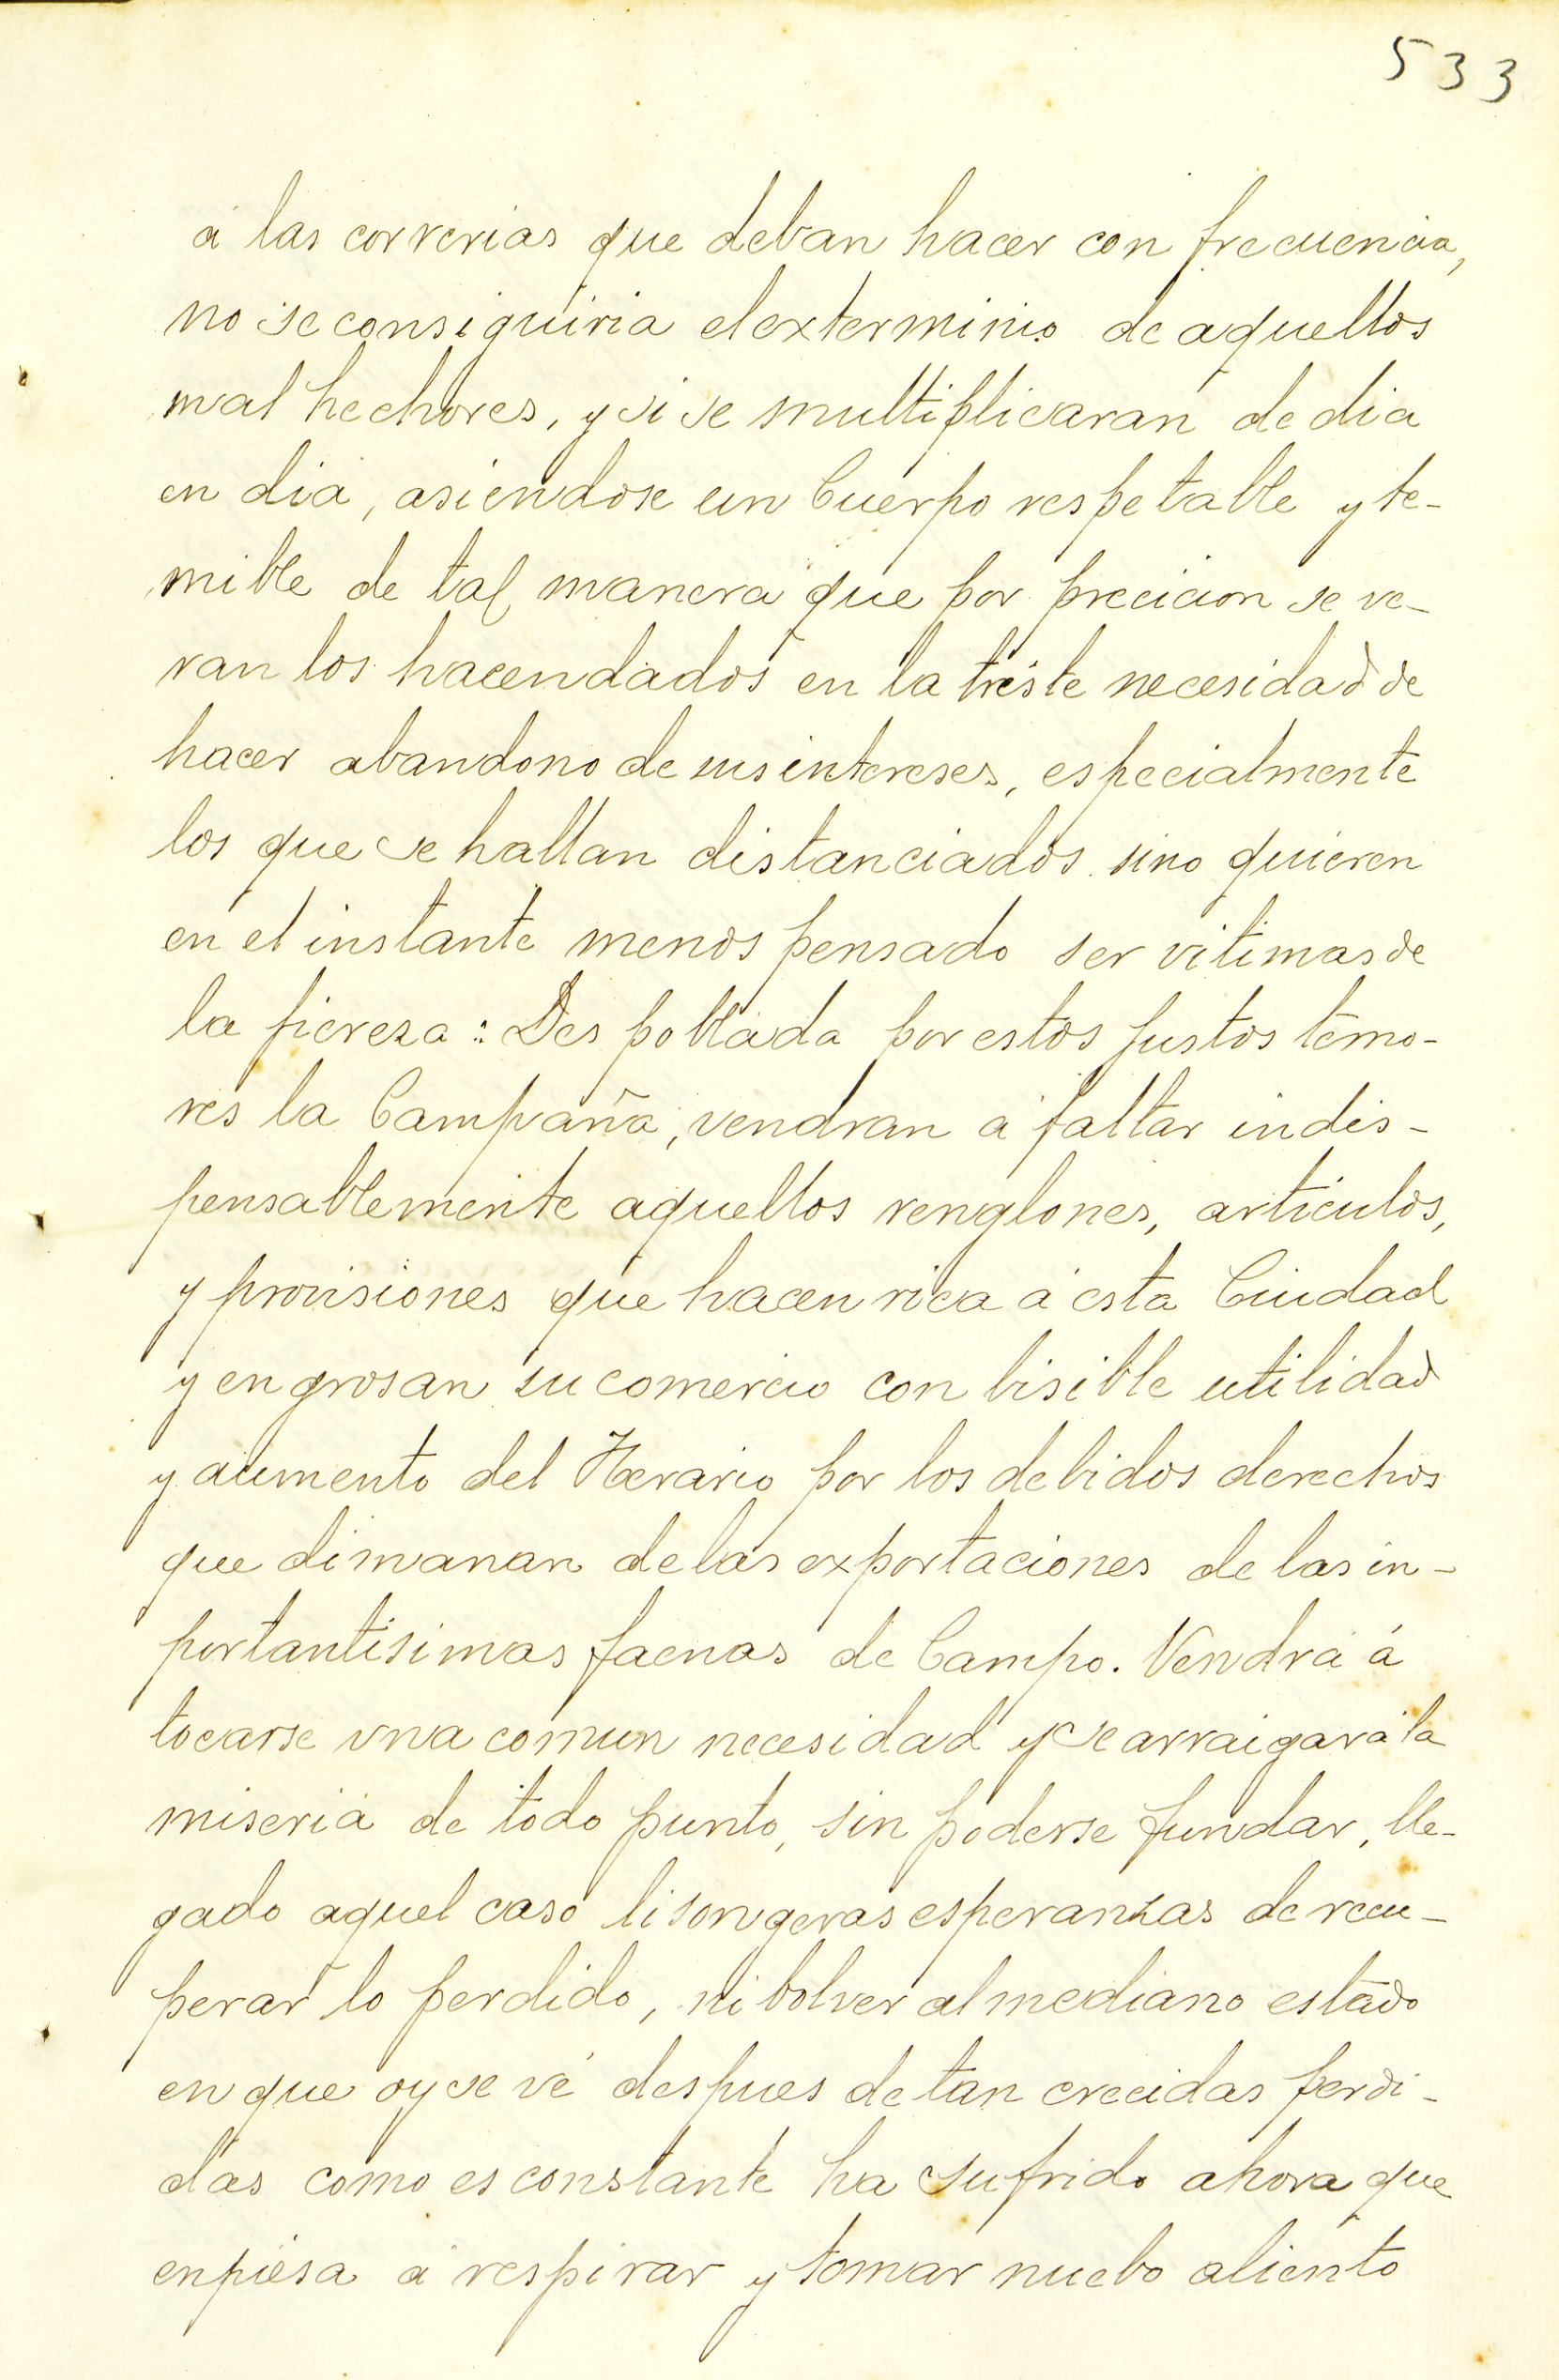 533
á las correrias que deban hacer con frecuencia,
no se consiguiria el exterminio de aquellos
mal hechores, y si se multiplicaran de dia
en dia, asiendose un Cuerpo respetable y te-
mible de tal manera que por precicion se ve-
ran los hacendados en la triste necesidad de
hacer abandono de sus intereses, especialmente
los que se hallan distanciados sino quieren
en el instante menos pensado ser vitimas de
la fieresa: Des poblada por estos justos temo-
res la Campaña, vendran á faltar indis-
pensablemente aquellos renglones, articulos,
y provisiones que hacen rica á esta Ciudad
y en grosan su comercio con bisible utilidad
y aumento del Herario por los debidos derechos
que dimanan de las exportaciones de las in-
portantisimas faenas de Campo. Vendrá á
tocarse una comun necesidad y se arraigará la
miseria de todo punto, sin poderse fundar, lle-
gado aquel caso lisongeras esperanzas de recu-
perar lo perdido, ni bolver al mediano estado
en que oy se vé despues de tan crecidas perdi-
das como es constante ha sufrido ahora que
enpiesa á respirar y tomar nuebo aliento